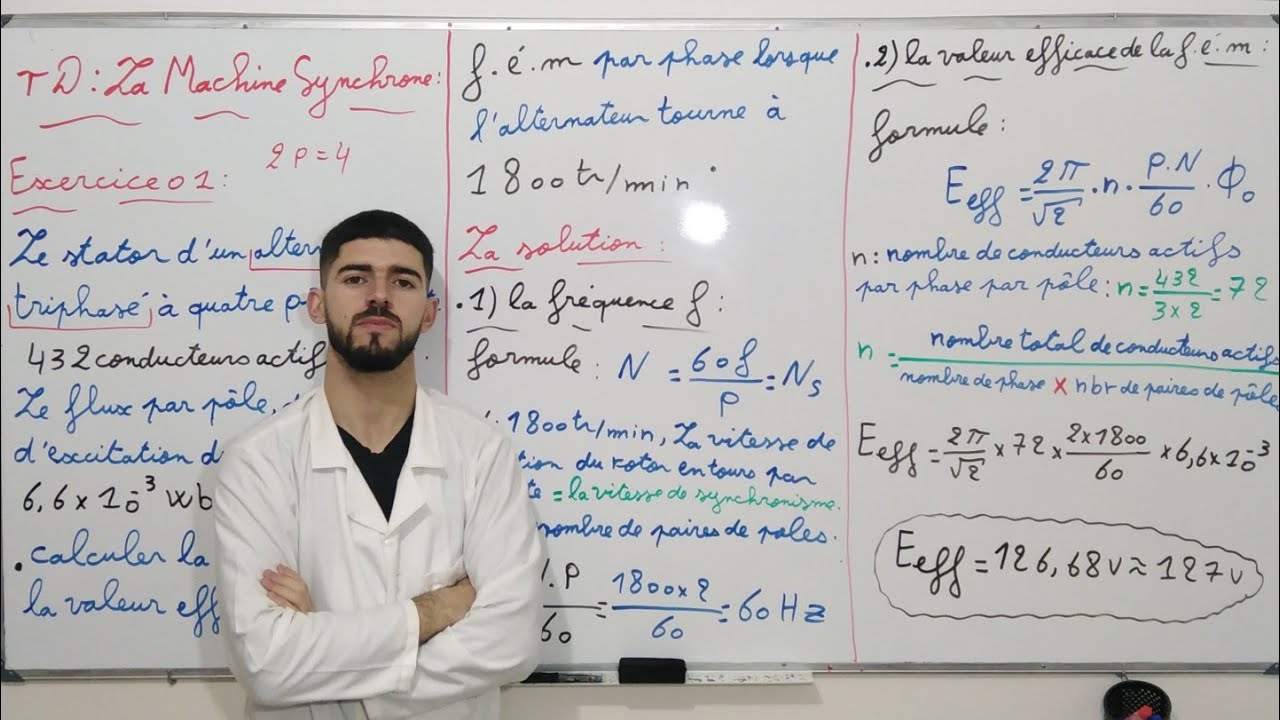 TD : La Machine Synchrone :
2P = 4
Exercice 01 :
Le stator d'un
triphasé à quatre
432 conducteurs
Le flux par pôle,
d'excitation
6,6 × 10⁻³ wb
. calculer la
la valeur
f.é.m par phase lorsque
l'alternateur tourne à
1800 tr/min .
La solution :
.1) la fréquence f :
formule : N = 60f/P = Ns
1800 tr/min, La vitesse de
du rotor en tours par
= la vitesse de synchronisme.
nombre de paires de poles.
.P/60 = 1800×2/60 = 60 Hz
.2) la valeur efficace de la f.é.m :
formule :
Eeff = 2π/√2 . n . P.N/60 . Φ₀
n : nombre de conducteurs actifs
par phase par pôle : n = 432/3×2 = 72
n = nombre total de conducteurs actifs/nombre de phase × nbr de paires de pôle
Eeff = 2π/√2 × 72 × 2×1800/60 × 6,6×10⁻³
Eeff = 126,68 v ≈ 127 v